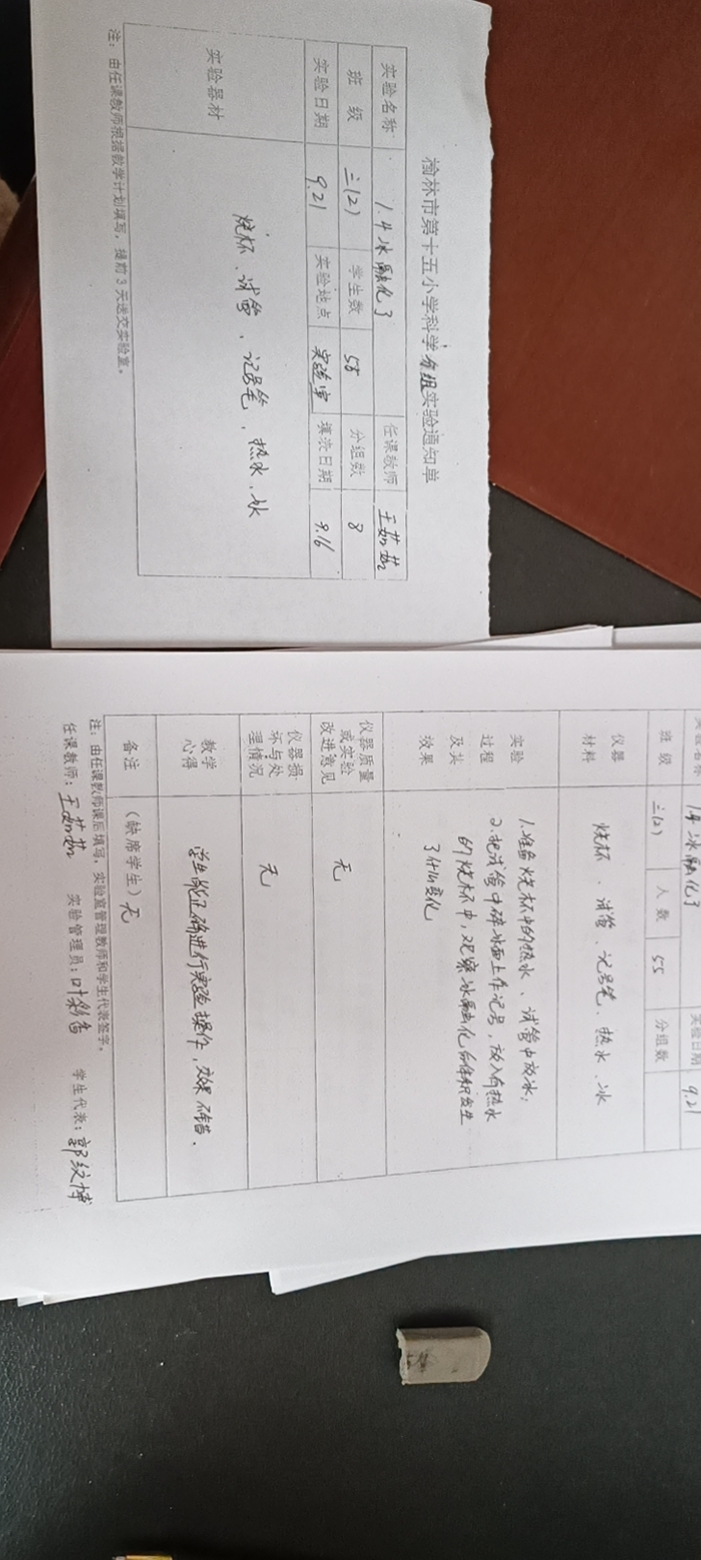 榆林市第十五小学科学分组实验通知单
实验名称 1.4冰融化了 任课教师
班 级 三(2) 学生数 58 分组数 8
实验日期 9.21 实验地点 实验室 填表日期 9.16
实验器材 烧杯、试管、记号笔、热水、冰
注：由任课教师根据教学计划填写，提前3天送交实验室。
1.4冰融化了 实验日期 9.21
班 级 三(2) 人 数 55 分组数
仪器
材料
烧杯、试管、记号笔、热水、冰
实验
过程
及其
效果
1.准备烧杯中的热水、试管中放冰；
2.把试管中碎冰面上作记号，放入有热水
的烧杯中，观察冰融化后体积发生
了什么变化
仪器质量
或实验
改进意见
无
仪器损
坏与处
理情况
无
教学
心得
学生能正确进行实验操作，效果不错。
备注 （缺席学生）无
注：由任课教师课后填写，实验室管理教师和学生代表签字。
任课教师： 实验管理员： 学生代表：